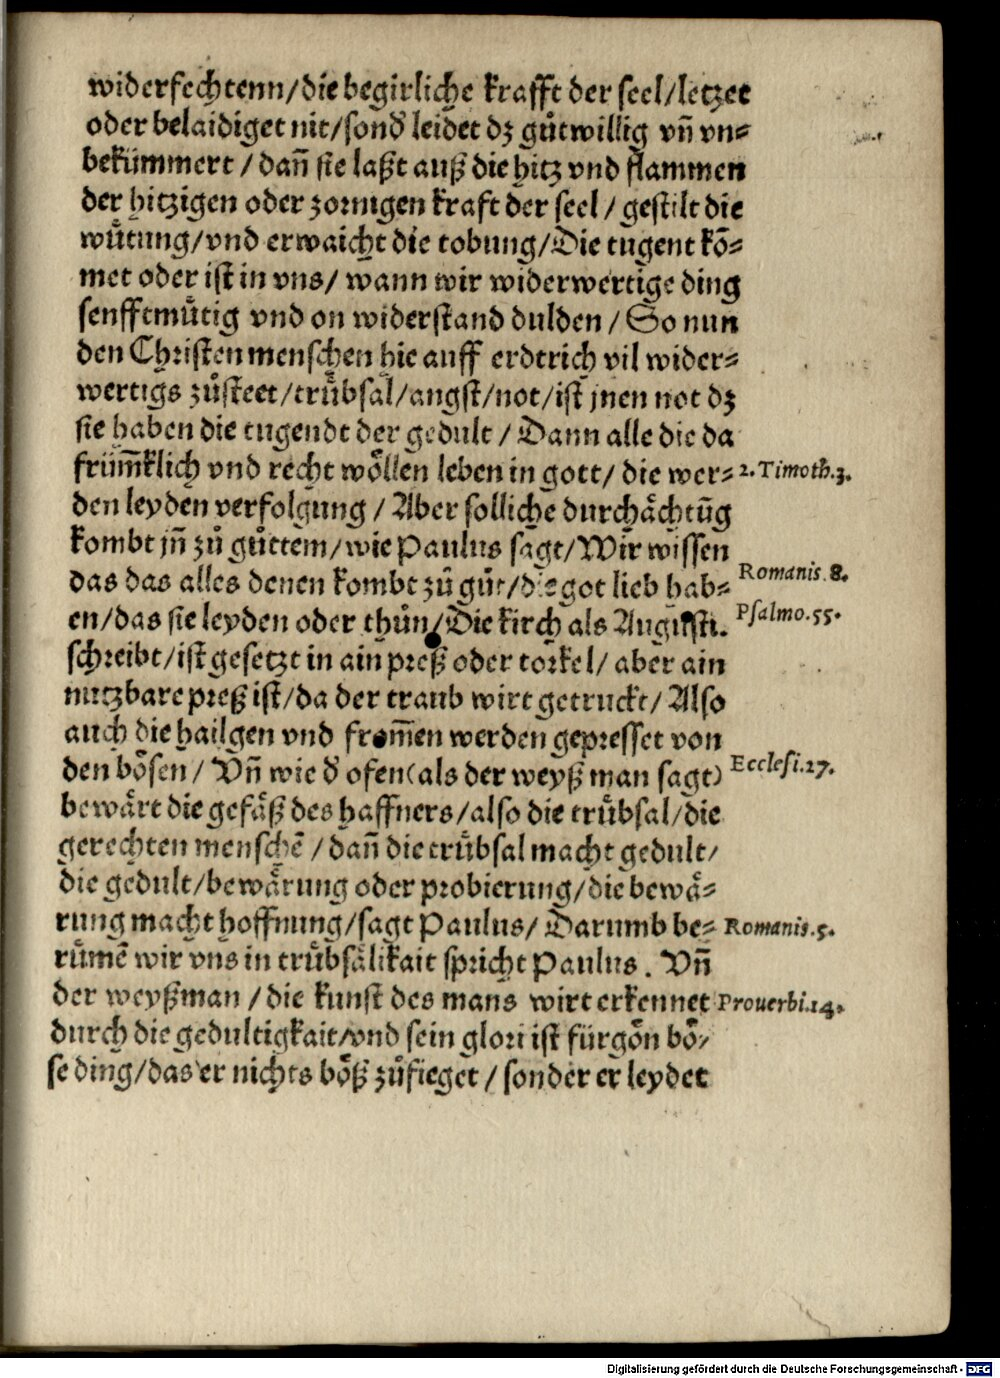 widerfechtenn/die begirliche krafft der seel/letzet
oder belaidiget nit/sond' leidet dz gůtwillig vñ vn⸗
bekümmert/dañ sie laßt auß die hitz vnd flammen
der hitzigen oder zornigen kraft der seel/gestilt die
wütung/vnd erwaicht die tobung/Die tugent kō⸗
met oder ist in vns/wann wir widerwertige ding
senfftmütig vnd on widerstand dulden/So nun
den Christen menschen hie auff erdtrich vil wider⸗
wertigs zůsteet/trübsal/angst/not/ist jnen not dz
sie haben die tugendt der gedult/Dann alle die da
frümm̄klich vnd recht wöllen leben in gott/die wer⸗ 2. Timoth.3.
den leyden verfolgung/Aber solliche durchächtūg
kombt jñ zů gůttem/wie Paulus sagt/Wir wissen
das das alles denen kombt zů gůt/die got lieb hab⸗ Romanis.8.
en/das sie leyden oder thůn/Die kirch als Augusti. Psalmo.55.
schreibt/ist gesetzt in ain preß oder torkel/aber ain
nutzbare preß ist/da der traub wirt getruckt/Also
auch die hailgen vnd from̄men werden gepresset von
den bösen/Vñ wie d' ofen(als der weyß man sagt) Ecclesi.27.
bewärt die gefäß des haffners/also die trübsal/die
gerechten menschē/dañ die trübsal macht gedult/
die gedult/bewärung oder probierung/die bewä⸗
rung macht hoffnung/sagt Paulus/Darumb be⸗ Romanis.5.
rümē wir vns in trübsälikait spricht Paulus. Vñ
der weyßman/die kunst des mans wirt erkennet Prouerbi.14.
durch die gedultigkait/vnd sein glori ist fürgōn bö⸗
se ding/das er nichts böß zůfieget/sonder er leydet
Digitalisierung gefördert durch die Deutsche Forschungsgemeinschaft - DFG